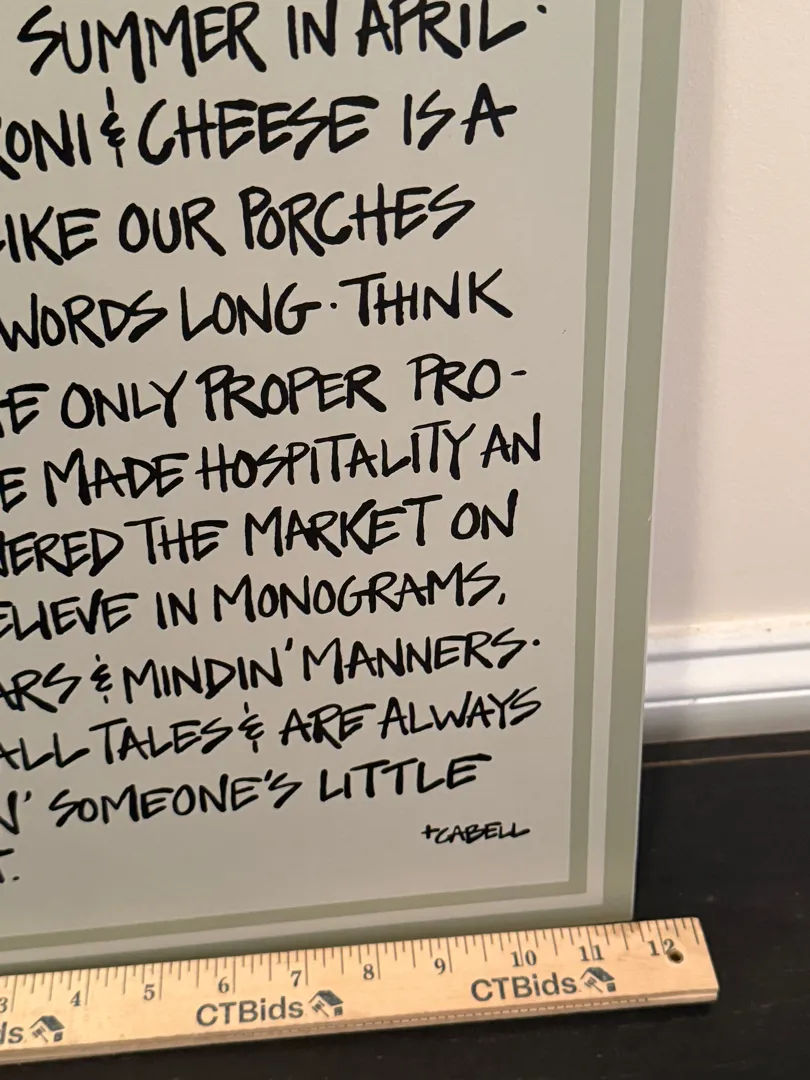 SUMMER IN APRIL·
RONI & CHEESE IS A
LIKE OUR PORCHES
WORDS LONG · THINK
HE ONLY PROPER PRO-
E MADE HOSPITALITY AN
NERED THE MARKET ON
ELIEVE IN MONOGRAMS,
ARS & MINDIN' MANNERS·
ALL TALES & ARE ALWAYS
N' SOMEONE'S LITTLE
T.
+CABELL
3 4 5 6 7 8 9 10 11 12
ds CTBids CTBids